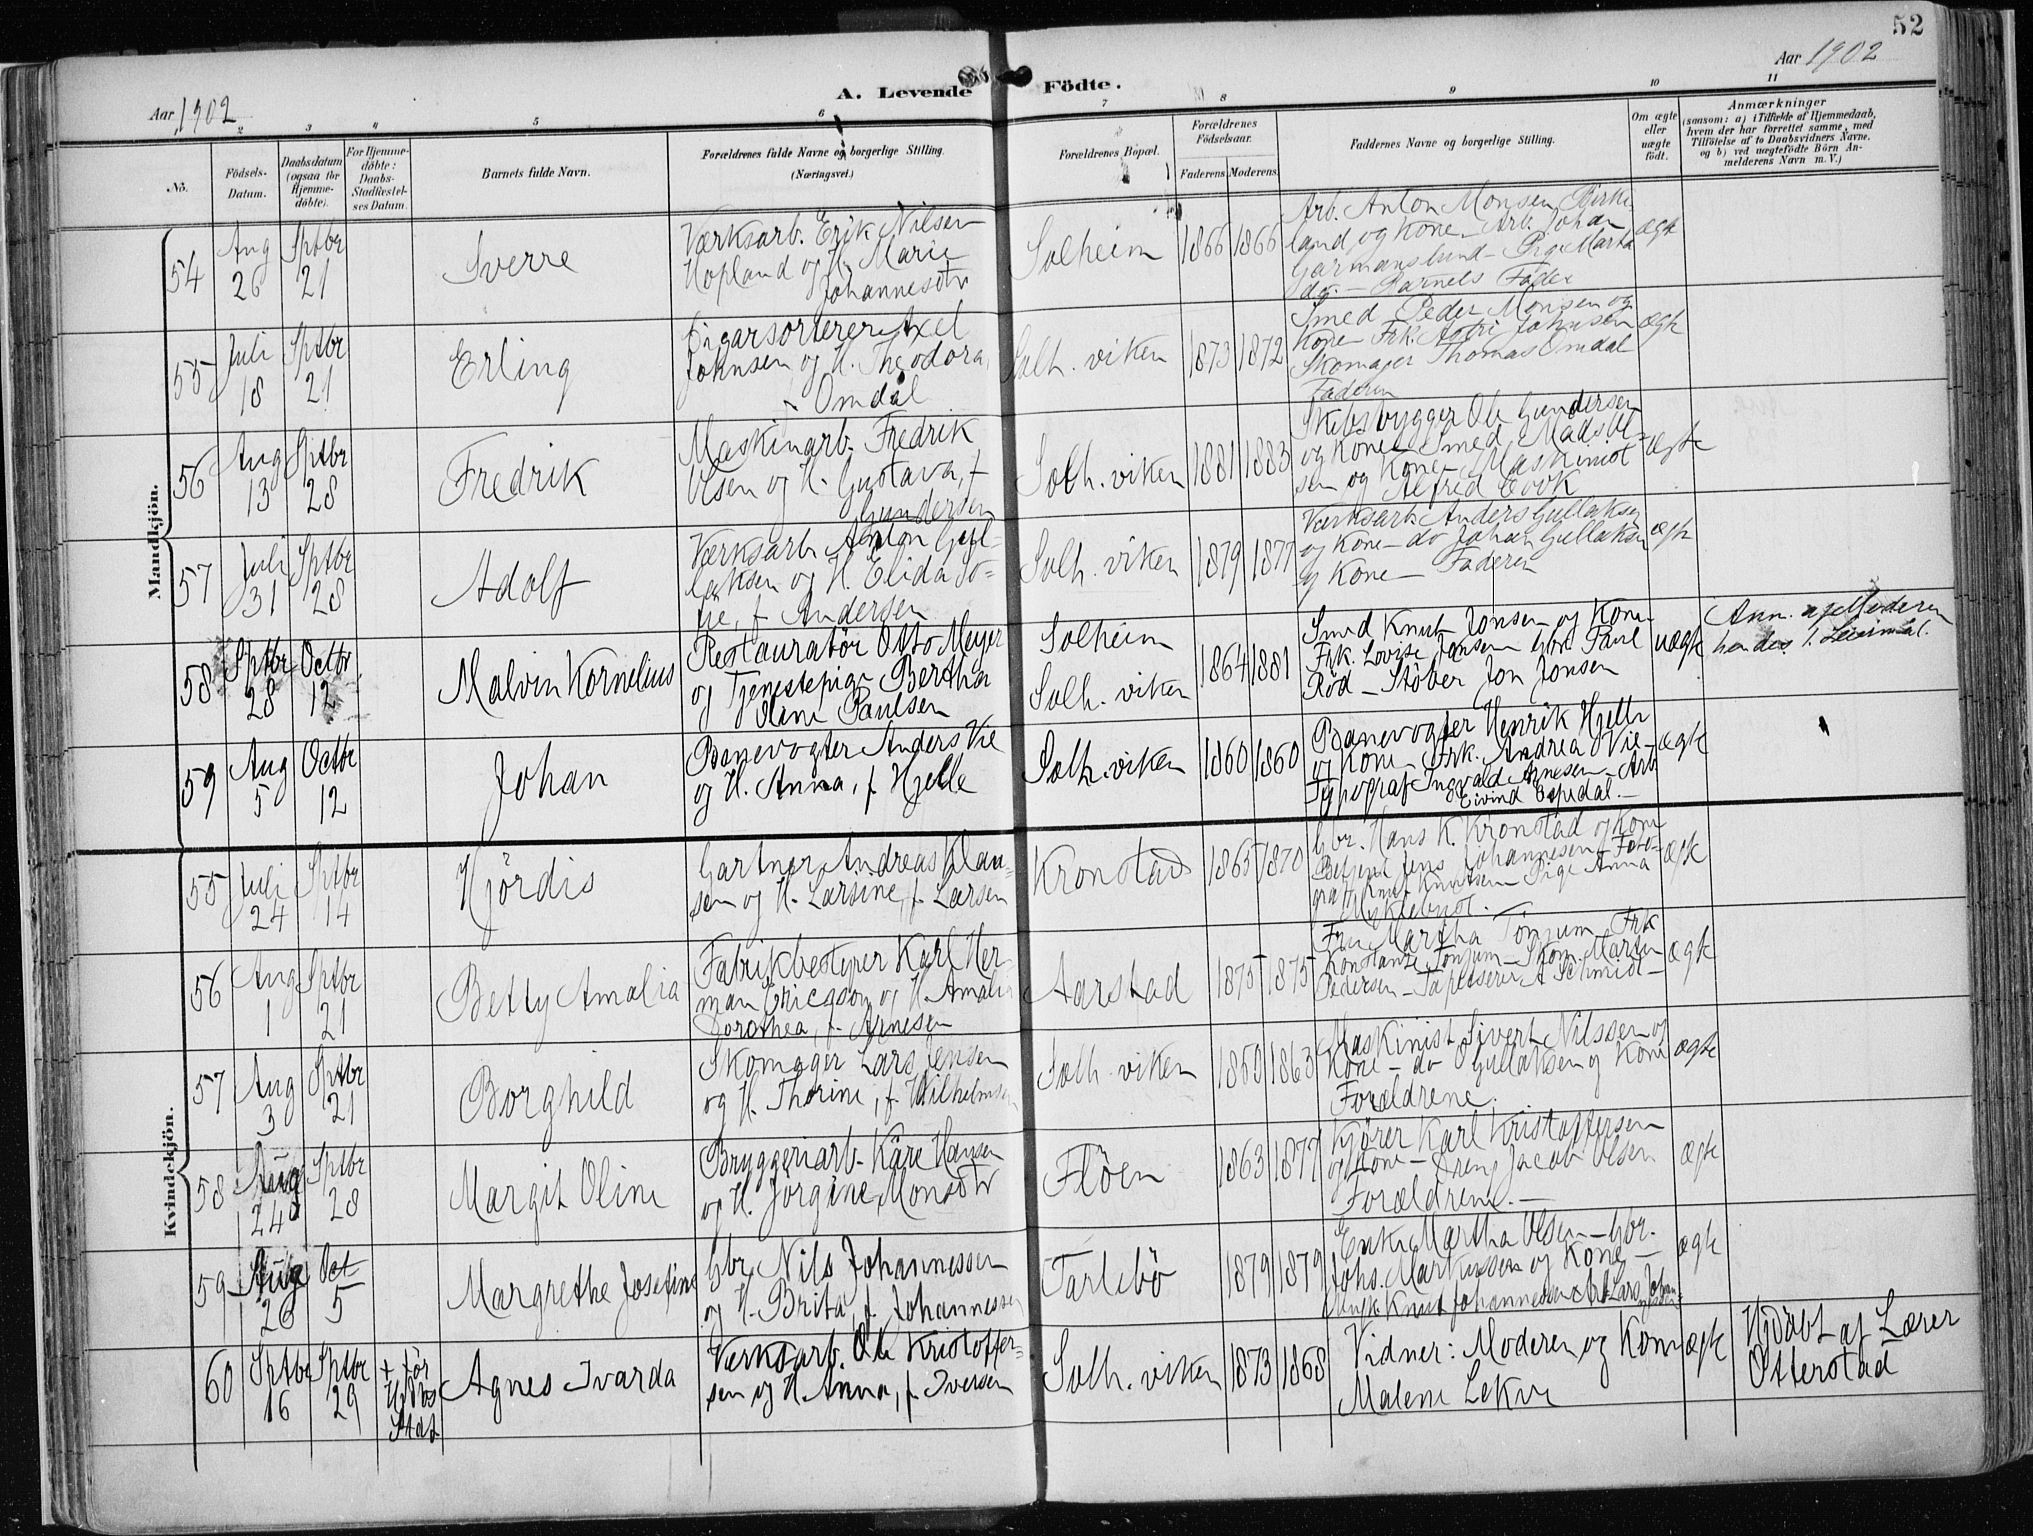 52
Aar 1902
Aar 1902
A. Levende Födte.
1 2 3 4 5 6 7 8 9 10 11
No.
Födsels-
Datum.
Daabsdatum
(ogsaa for
Hjemme-
döbte).
For Hjemme-
döbte:
Daabs-
Stadfæstel-
ses Datum.
Barnets fulde Navn.
Forældrenes fulde Navne og borgerlige Stilling.
(Næringsvei.)
Forældrenes Bopæl.
Forældrenes
Födselsaar.
Faderens Moderens.
Faddernes Navne og borgerlige Stilling.
Om ægte
eller
uægte
födt.
Anmærkninger
(saasom: a) i Tilfælde af Hjemmedaab,
hvem der har forrettet samme, med
Tilföielse af to Daabsvidners Navne.
og b) ved uægtefödte Börn An-
melderens Navn m. V.)
Mandkjön.
54
Aug
26
Sptbr
21
Sverre
Værksarb. Erik Nilsen
Hopland og H. Marie
Johannesdtr
Solheim
1866 1866
Arb. Anton Monsen Birke
land og Kone - Arb. Johan
Garmanslund - Pige Marta
do. - Barnets Fader
ægte
55
Juli
18
Sptbr
21
Erling
Cigarsorterer Axel
Johnsen og H. Theodora,
f. Omdal
Solh. viken
1873 1872
Smed Peder Monsen og
Kone - Frk. Johnsen
Skomager Thomas Omdal
Faderen
ægte
56
Aug
13
Sptbr
28
Fredrik
Maskinarb. Fredrik
Olsen og H. Gustava, f.
Gundersen
Solh. viken
1881 1883
Skibsbygger Ole Gundersen
og Kone - Smed Mads Ol-
sen og Kone - Maskinist
Alfred
ægte
57
Juli
31
Sptbr
28
Adolf
Værksarb. Anton Gul-
laksen og H. Elida So-
fie, f. Andersen
Solh. viken
1879 1877
Værksarb. Anders Gullaksen
og Kone - do Johan Gullaksen
og Kone - Faderen
ægte
58
Sptbr
28
Octbr
12
Malvin Kornelius
Restauratør Otto Meyer
og Tjenestepige Bertha
Paulsen
Solheim
Solh. viken
1864 1881
Smed Knut Jonsen og Kone
Frk. Lovise Jansen Gbr. Paul
Röd - Støber Jon Jonsen
uægte
Ann. af Moderen
hendes 1. Leiermaal.
59
Aug
5
Octbr
12
Johan
Banevogter Anders Vie
og H. Anna, f. Hjelle
Solh. viken
1860 1860
Banevogter Henrik Hjelle
og Kone - Frk. Andrea Vie -
Typograf Ingvald Arnesen - Arb.
Eivind Espedal. -
ægte
Kvindekjön.
55
Juli
24
Sptbr
14
Hjördis
Gartner Andreas Klau-
sen og H. Larsine, f. Larsen
Kronstad
1865 1870
Gbr. Hans K. Kronstad og Kone
Betjent Jens Johannesen - Foto-
graf Knut Knutsen - Pige Anna
Myklebust.
ægte
56
Aug
1
Sptbr
21
Betty Amalia
Fabrikbestyrer Karl Her-
man Ericsson og H. Amalia
Dorothea, f. Arnesen
Aarstad
1875 1875
Fru Martha Tönjum - Frk
Konstanze Tonjum - Skom. Martin
Pedersen - Tapetserer A Schmidt -
ægte
57
Aug
3
Sptbr
21
Borghild
Skomager Lars Jensen
og H. Thorine, f. Wilhelmsen
Solh. viken
1860 1863
Maskinist Sivert Nilssen og
Kone - do O Gullaksen og Kone
Forældrene.
ægte
58
Aug
24
Sptbr
28
Margit Oline
Bryggeriarb. Kåre Hansen
og H. Jorgine Monsdtr
Flöen
1863 1877
Kjører Karl Kristoffersen
og Kone - Dreng Jacob Olsen
Forældrene. -
ægte
59
Aug
26
Oct
5
Margrethe Josefine
Gbr. Nils Johannessen
og H. Brita, f. Johannessen
Tarlebö
1879 1879
Enke Martha Olsen - Gbr.
Johs. Markussen og Kone -
Ungk. Knut Johannessen - Arb. Lars Johan-
nessen
ægte
60
Sptbr
16
Sptbr
29
+ før
Stadf
Agnes Ivarda
Værksarb. Ole Kristoffer-
sen og H Anna, f. Iversen
Solh. viken
1873 1868
Vidner: Moderen og Kone
Malene Lekve
ægte
Hjdöbt af Lærer
Otterstad